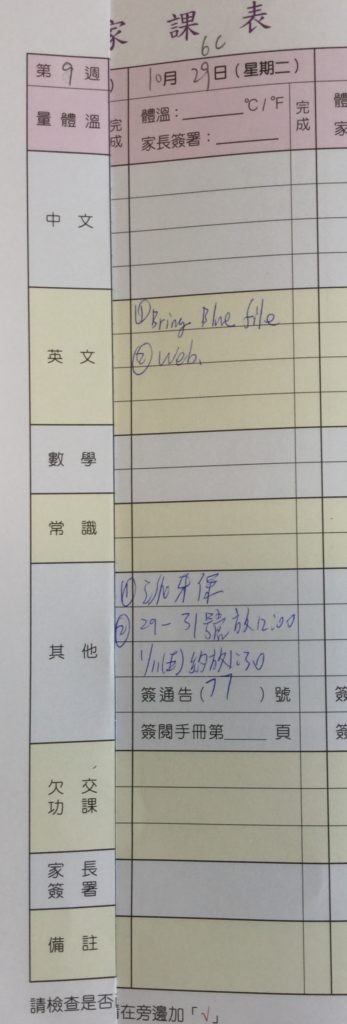 家課表
6C
第9週
10月29日(星期二)
量體溫
完成
體溫：______℃/℉
家長簽署：______
完成
中文
英文
① Bring Blue file
② Web.
數學
常識
其他
①
② 29-31號放12:00
1/11(五)約放1:30
簽通告(77)號
簽閱手冊第____頁
欠交功課
家長簽署
備註
請檢查是否
在旁邊加「√」